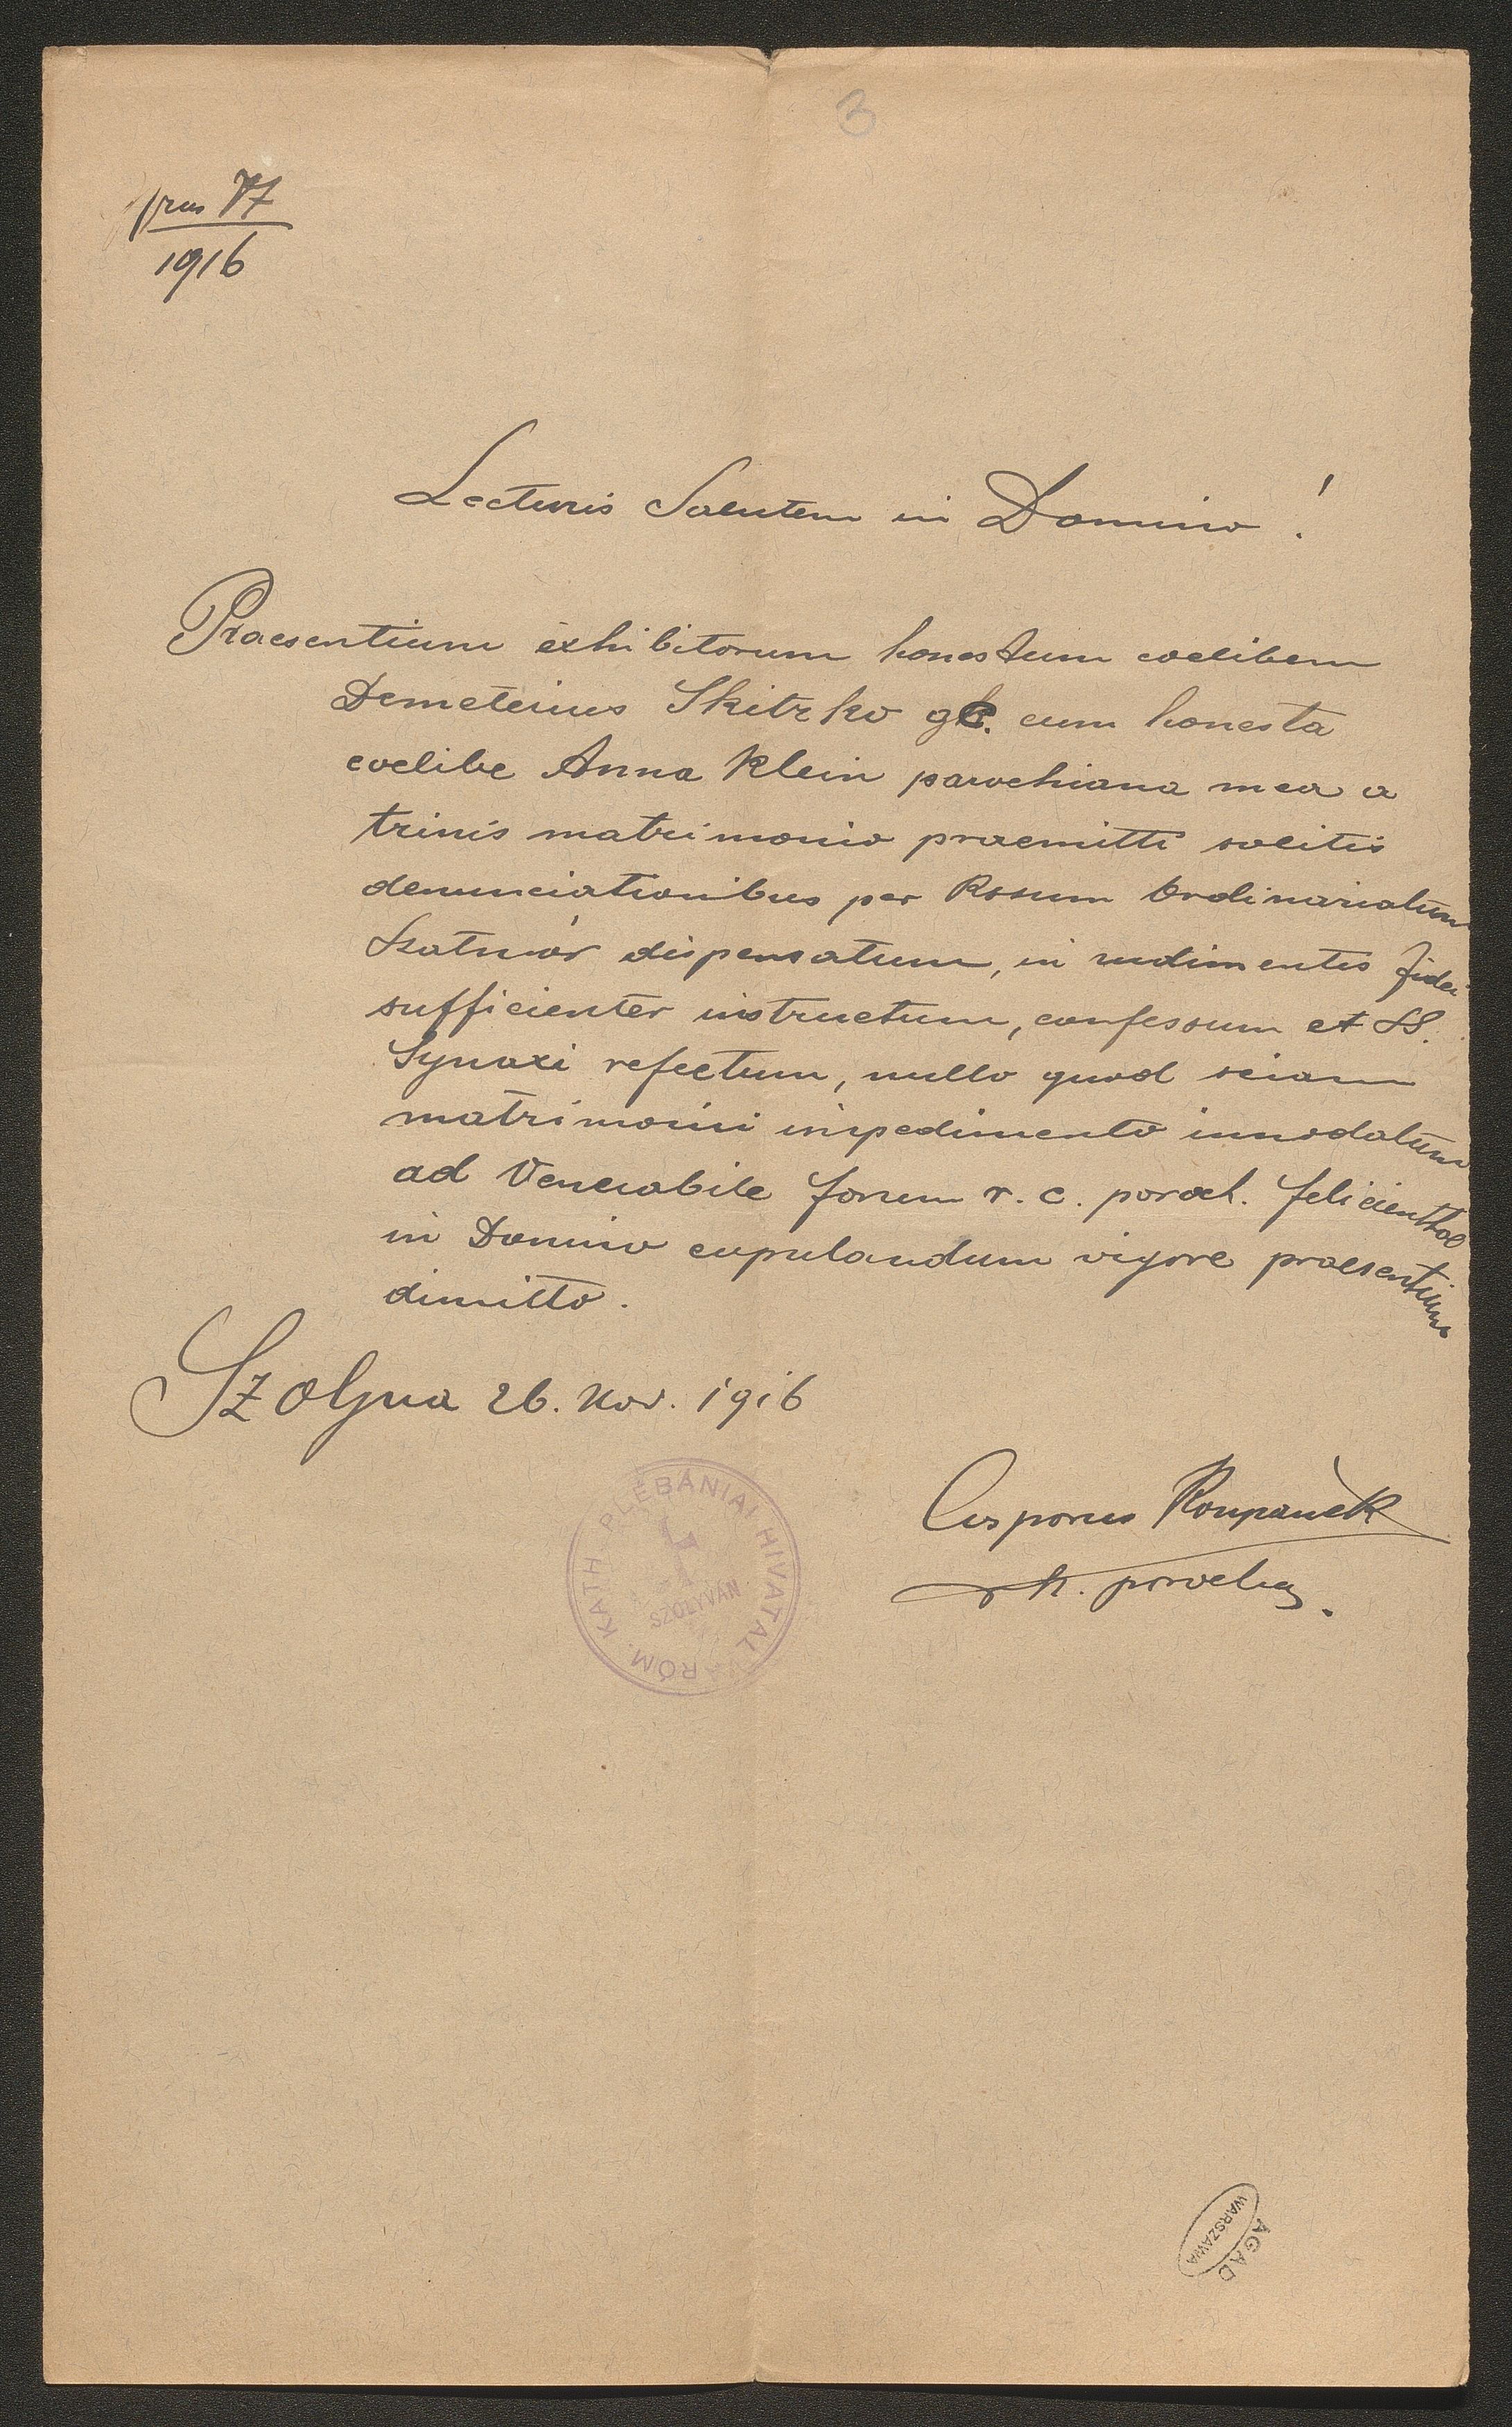 3
77
1916
Lecturis Salutem in Domino!
Praesentium exhibitorum honestum coelibem
Demeterius Skitzko gc. cum honesta
coelibe Anna Klein parochiana mea a
trinis matrimonio praemitti solitis
denunciationibus per Rssum Ordinariatum
Szatmár dispensatum, in rudimentis fidei
sufficienter instructum, confessum et SS.
Synaxi refectum, nullo quod sciam
matrimonii impedimento innodatum
ad Venerabile forum r. c. paroch. felicienthal
in Domino copulandum vigore praesentium
dimitto.
Szolyva 26. Nov. 1916
Casparus
parochus.
RÓM. KATH. PLÉBÁNIAI HIVATAL
SZOLYVÁN
AGAD
WARSZAWA